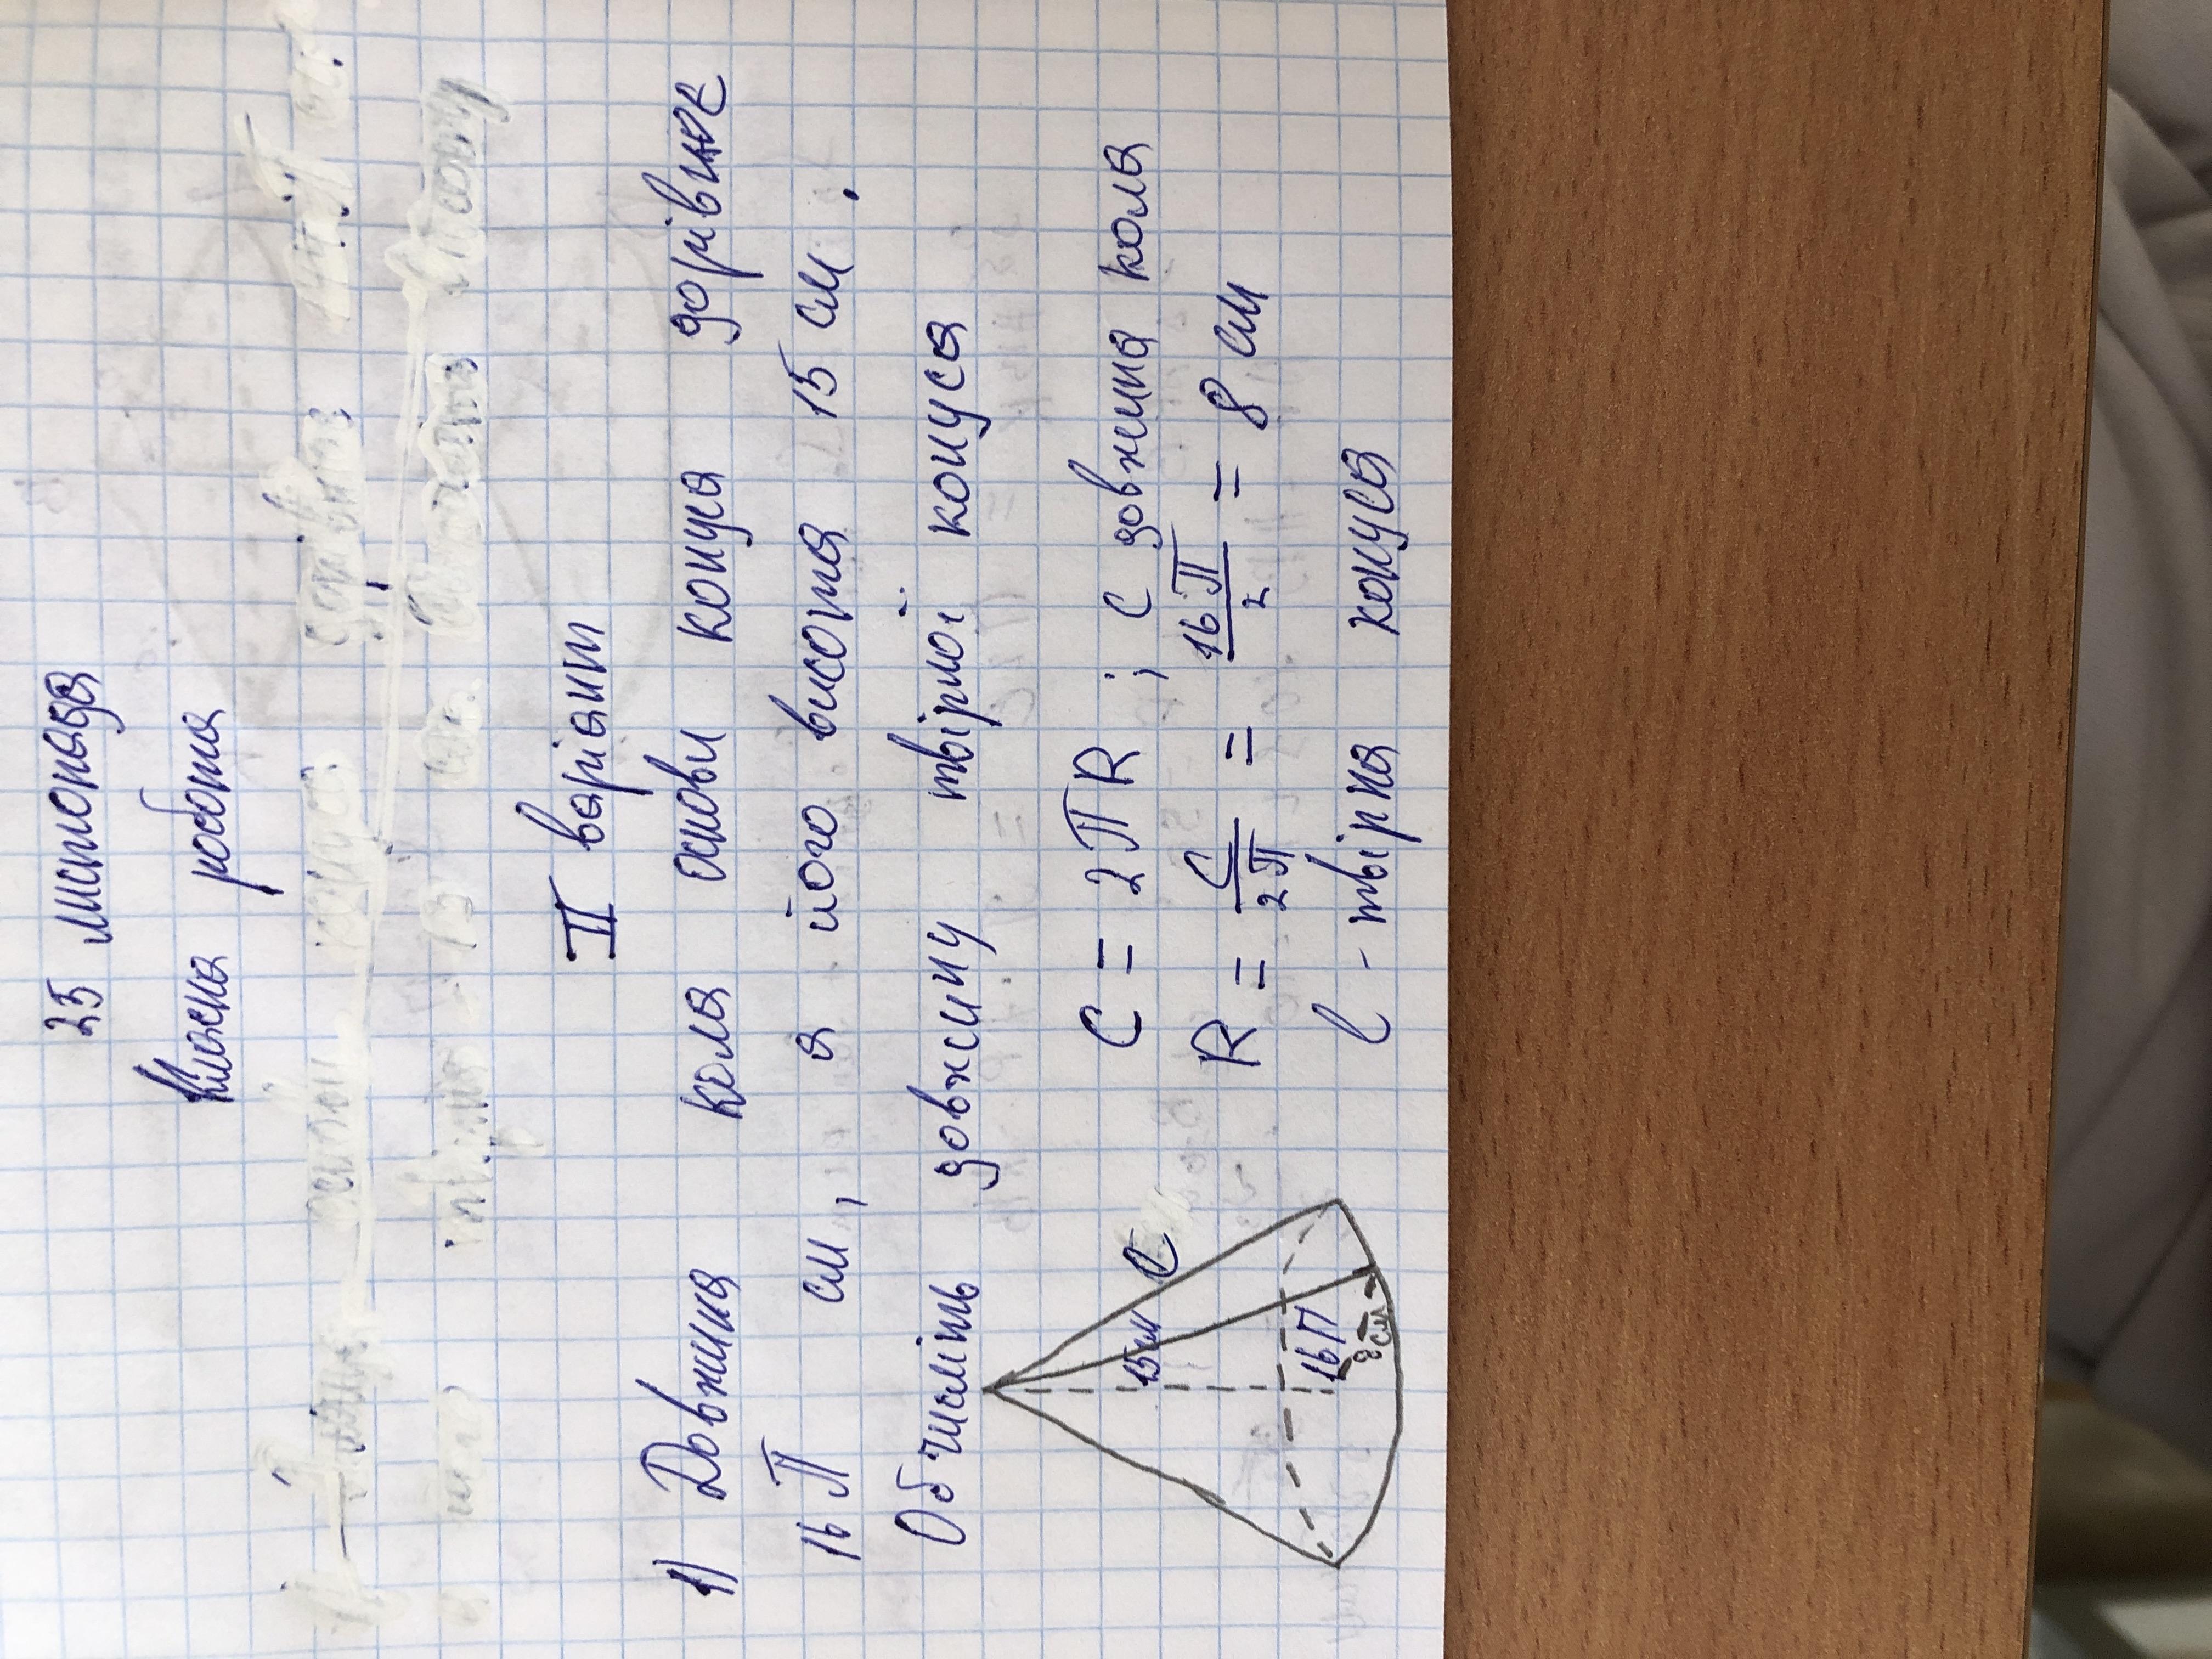 25 листопада
Класна робота
II варіант
1) Довжина кола основи конуса дорівнює
16 П см, а його висота 15 см.
Обчисліть довжину твірної конуса
C = 2ПR ; C довжина кола
R = C/2П = 16П/2 = 8 см
l - твірна конуса
15 см
l
16П
8 см